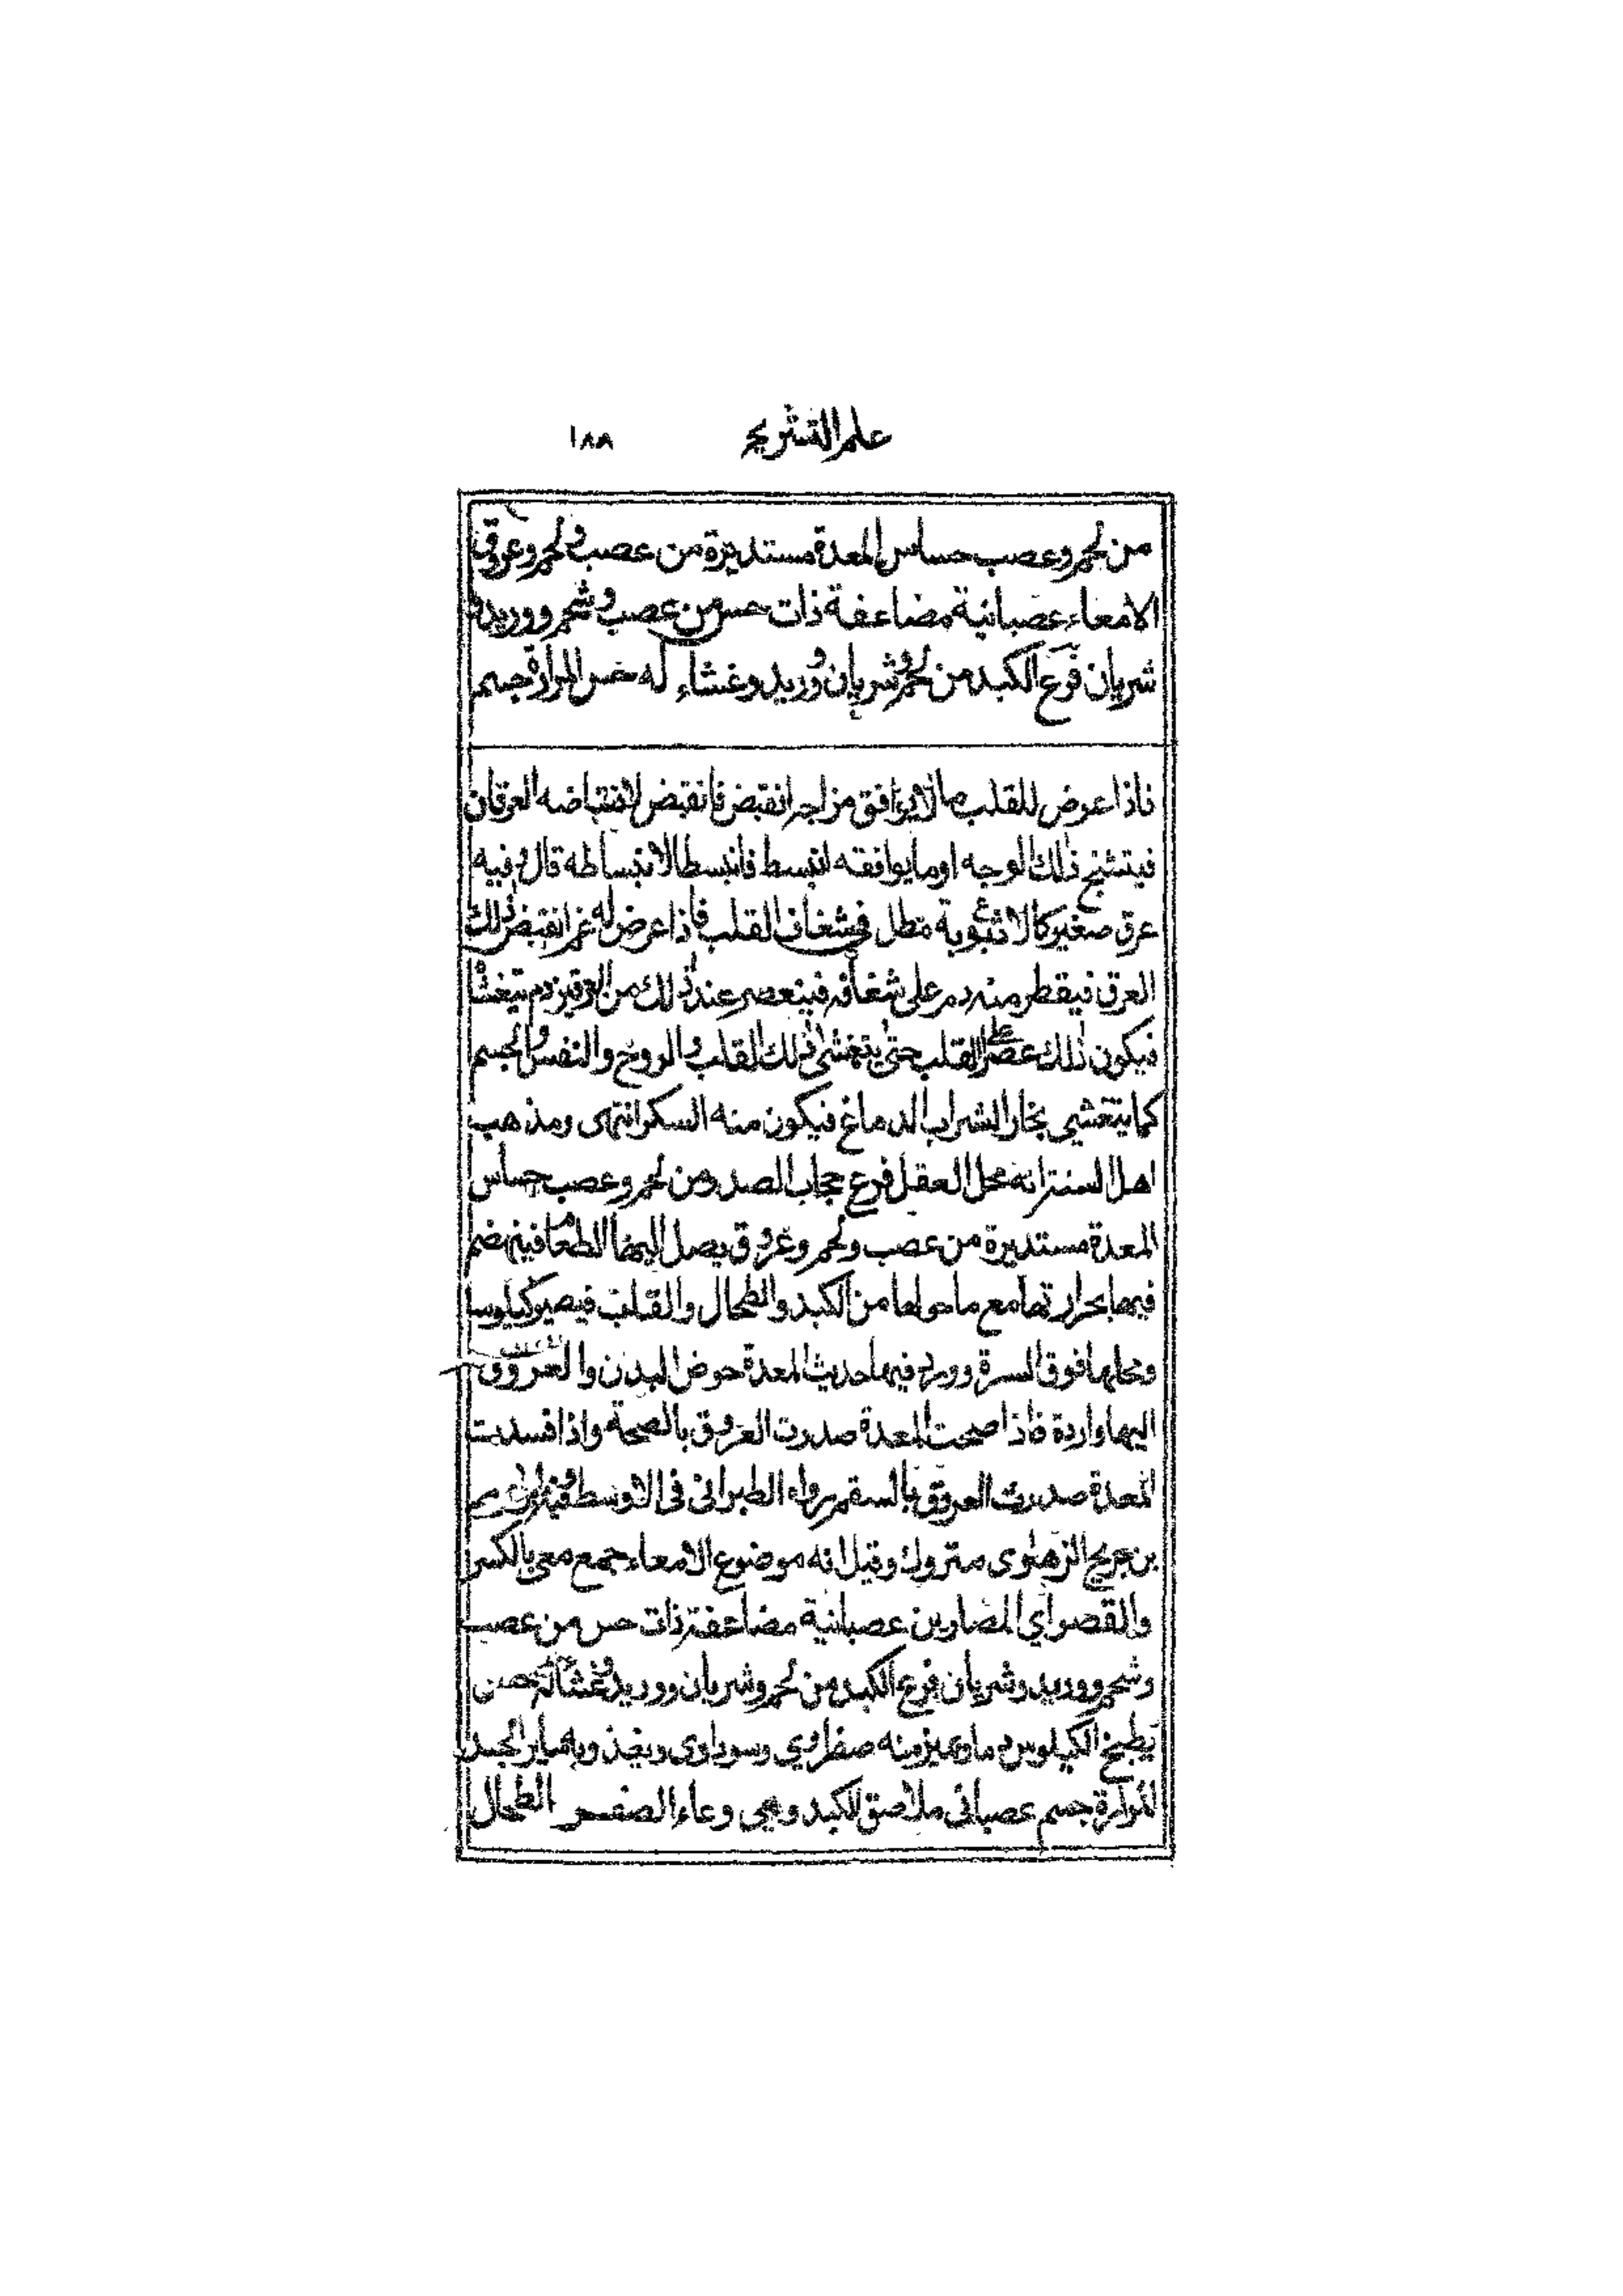 علم التشريح ١٨٨
من لحم وعصب حساس المعدة مستديرة من عصب ولحم وعروق
الامعاء عصبانية مضاعفة ذات حس من عصب وشحم ووريد و
شريان فرع الكبد من لحم وشريان ووريد وغشاء له حس المرارة جسم
فاذا عرض للقلب ما لا يوافق مزاجه انقبض فانقبض لانقباضه العرقان
فيتشنج ذلك الوجه او ما يوافقه انبسط فانبسطا لانبساطه قال وفيه
عرق صغير كالانبوبة مطل في شغاف القلب فاذا عرض له غم انقبض ذلك
العرق فيقطر منه دم على شغافه فينعصر عند ذلك من العرقين دم يتغشا
فيكون ذلك عصرا القلب حتى يتغشى ذلك القلب والروح والنفس والجسم
كما يتغشي بخار الشراب الدماغ فيكون منه السكر انتهى ومذهب
اهل السنة انه محل العقل فرع حجاب الصدر من لحم وعصب حساس
المعدة مستديرة من عصب ولحم وعروق يصل اليها الطعام فينهضم
فيها بحرارتها مع ما حولها من الكبد والطحال والقلب فيصير كيلوسا
ومحلها فوق السرة وورد فيها حديث المعدة حوض البدن والعروق
اليها واردة فاذا صحت المعدة صدرت العروق بالصحة واذا فسدت
المعدة صدرت العروق بالسقم رواه الطبراني في الاوسط وفيه
بن جريج الرهاوى متروك وقيل انه موضوع الامعاء جمع معى بالكسر
والقصر اي المصارين عصبانية مضاعفة ذات حس من عصب
وشحم ووريد وشريان فرع الكبد من لحم وشريان ووريد وغشاء له حس
يطبخ الكيلوس دما ويميز منه صفراوي وسوداوى ويغذ وبه سائر الجسد
المرارة جسم عصبانى ملاصق الكبد وهي وعاء الصفر الطحال